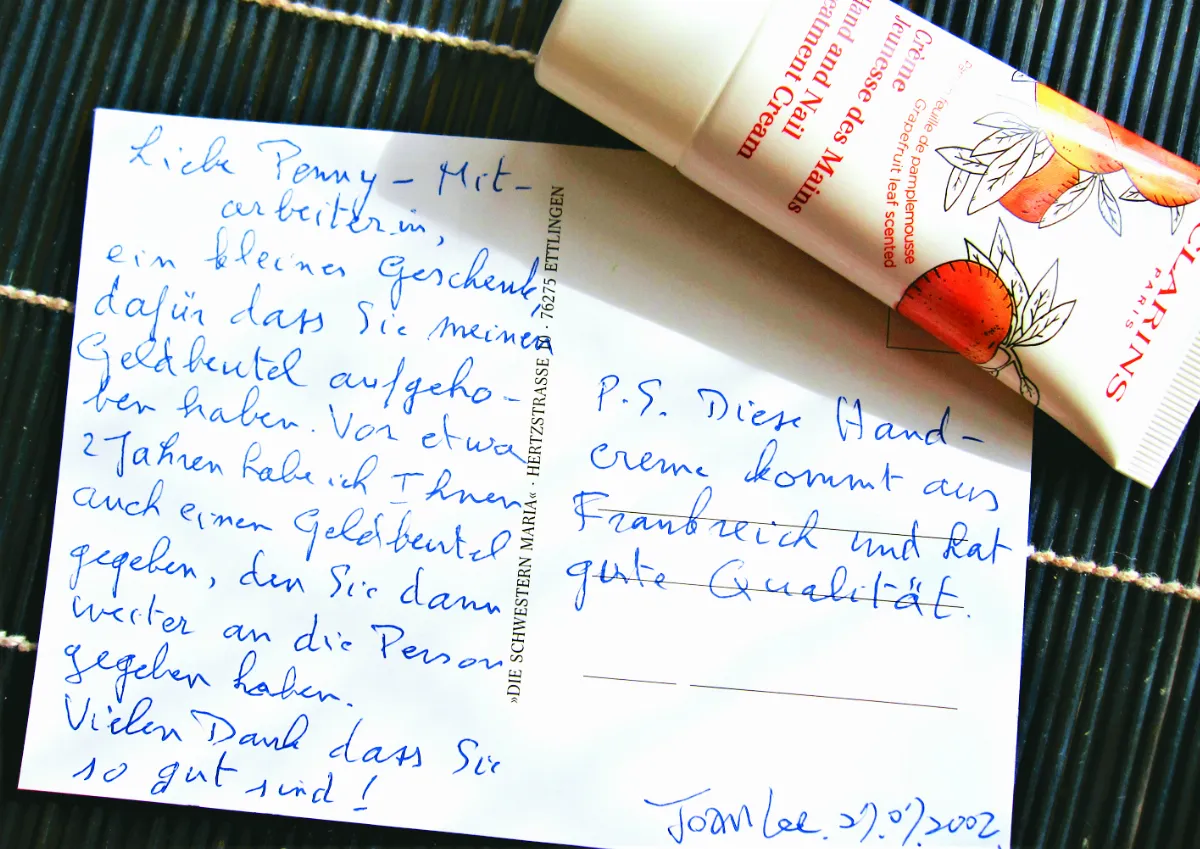 Liebe Penny – Mit-
arbeiterin,
ein kleines Geschenk,
dafür dass Sie meinen
Geldbeutel aufgeho-
ben haben. Vor etwa
2 Jahren habe ich Ihnen
auch einen Geldbeutel
gegeben, den Sie dann
weiter an die Person
gegeben haben.
Vielen Dank dass Sie
so gut sind!
»DIE SCHWESTERN MARIA« · HERTZSTRASSE · 76275 ETTLINGEN
P.S. Diese Hand-
creme kommt aus
Frankreich und hat
gute Qualität.
Joan Lee.
CLARINS
PARIS
Crème
Jeunesse des Mains
Hand and Nail
Treatment Cream
feuille de pamplemousse
Grapefruit leaf scented